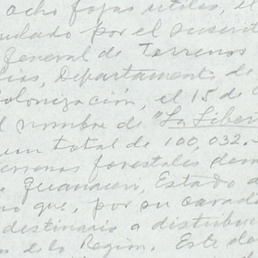 ocho fojas útiles, el
por el suscrito
General de Terrenos
Departamento de
olonización, el 15 de
nombre de "La Liber
un total de 100,032.
errenos forestales
Guanacevi, Estado d
que, por su
destinario a distribu
de la Región. Este do